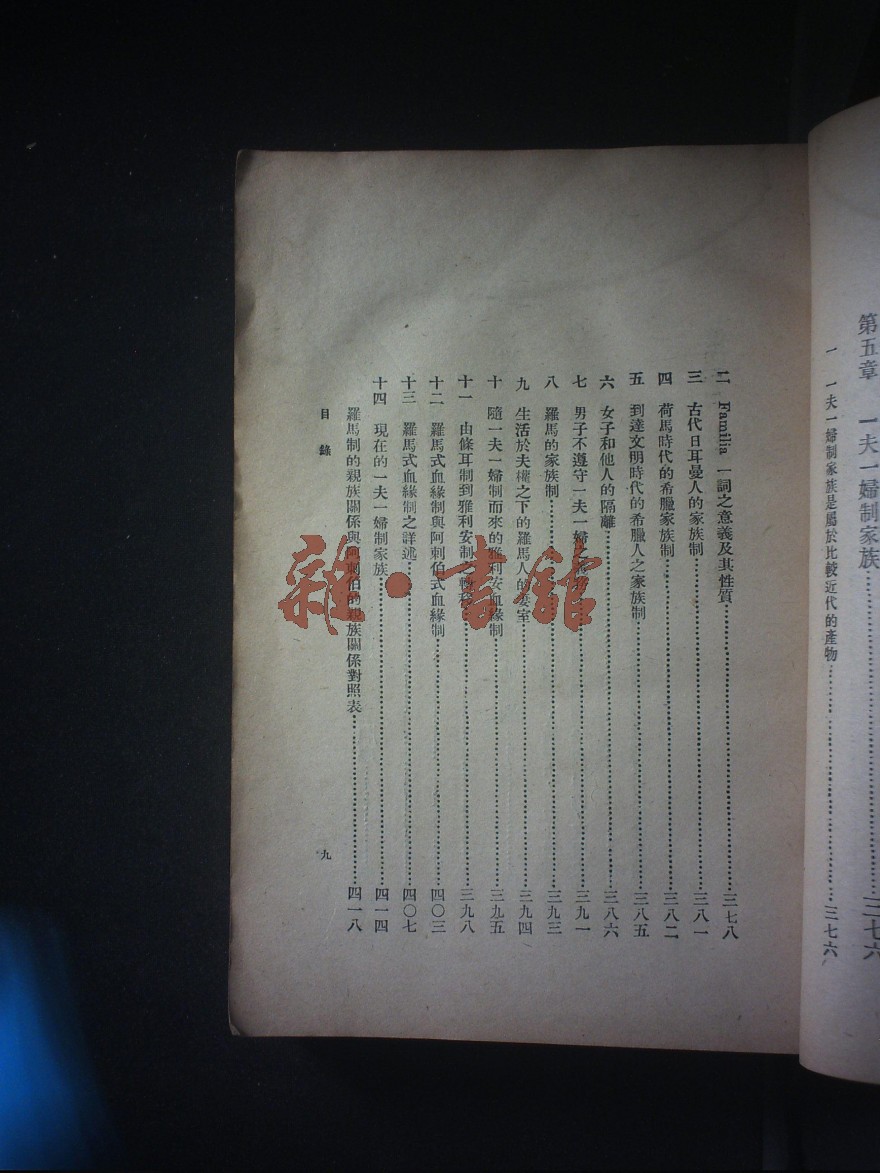 第五章　一夫一婦制家族……三七六
一　一夫一婦制家族是屬於比較近代的產物……三七六
二　Familia 一詞之意義及其性質……三七八
三　古代日耳曼人的家族制……三八一
四　荷馬時代的希臘家族制……三八二
五　到達文明時代的希臘人之家族制……三八五
六　女子和他人的隔離……三八六
七　男子不遵守一夫一婦之……三九一
八　羅馬的家族制……三九三
九　生活於夫權之下的羅馬人的妻室……三九四
十　隨一夫一婦制而來的雅利安血緣制……三九五
十一　由條耳制到雅利安制之轉移……三九八
十二　羅馬式血緣制與阿剌伯式血緣制……四〇三
十三　羅馬式血緣制之詳述……四〇七
十四　現在的一夫一婦制家族……四一四
羅馬制的親族關係與阿剌伯的親族關係對照表……四一八
目錄
九
雜·書館